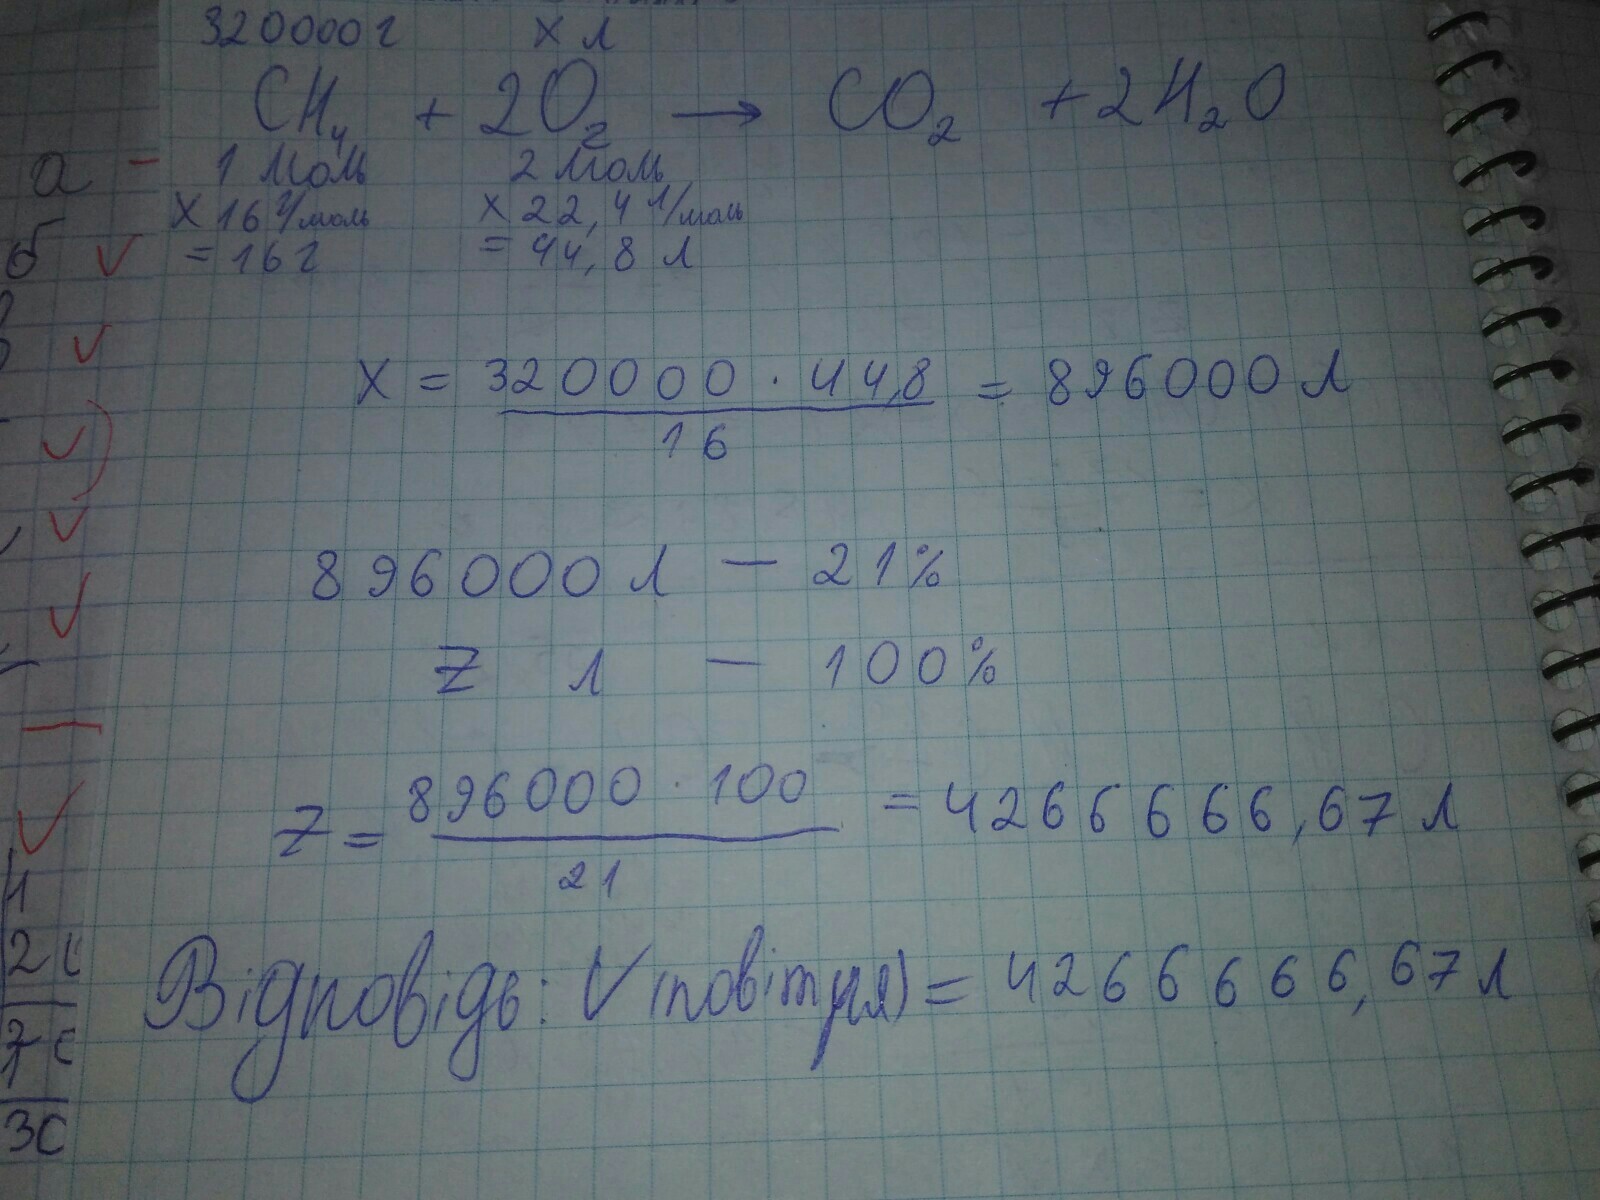 320000 г х л
CH₄ + 2O₂ → CO₂ + 2H₂O
а - 1 моль 2 моль
х 16 г/моль х 22,4 л/моль
б = 16 г = 44,8 л
х = 320000 · 44,8 = 896000 л
16
896000 л — 21%
Z л — 100%
Z = 896000 · 100 = 4266666,67 л
21
Відповідь: V(повітря) = 4266666,67 л